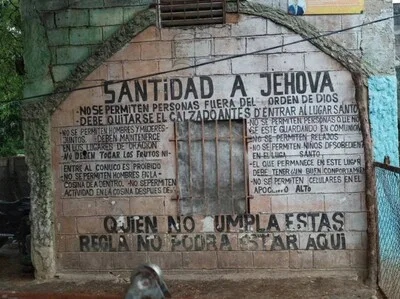 SANTIDAD A JEHOVA
-NO SE PERMITEN PERSONAS FUERA DEL ORDEN DE DIOS
-DEBE QUITARSE EL CALZADO ANTES D'ENTRAR AL LUGAR SANTO
-NO SE PERMITEN HOMBRES Y MUJERES
JUNTOS DEBEN MANTENERCE
EN LOS LUGARES DE ORACION
-NO DEBEN TOCAR LOS FRUTOS NI
ENTRE AL CONUCO ES PROIBIDO
-NO SE PERMITEN HOMBRES EN LA
COSINA DE A DENTRO -NO SE PERMITEN
ACTIVIDAD EN LA COSINA DESPUES DE
-NO SE PERMITEN PERSONAS QUE NO
SE ESTE GUARDANDO EN COMUNION
-NO SE PERMITEN RELAJOS
-NO SE PERMITEN NIÑOS
EN EL LUGAR SANTO
-EL QUE PERMANECE EN ESTE LUGAR
DEBE TENER UN BUEN
-NO SE PERMITEN CELULARES EN EL
ALTO
QUIEN NO CUMPLA ESTAS
REGLA NO PODRA ESTAR AQUI